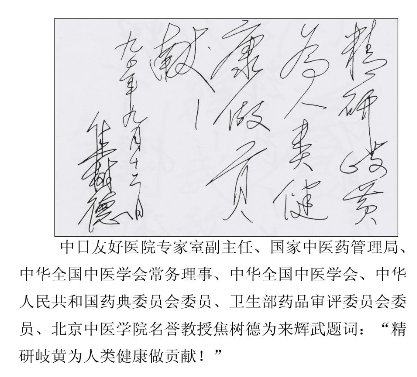 精研岐黄
为人类健
康做贡
献！
九〇年九月十二日
焦树德
中日友好医院专家室副主任、国家中医药管理局、
中华全国中医学会常务理事、中华全国中医学会、中华
人民共和国药典委员会委员、卫生部药品审评委员会委
员、北京中医学院名誉教授焦树德为来辉武题词：“精
研岐黄为人类健康做贡献！”